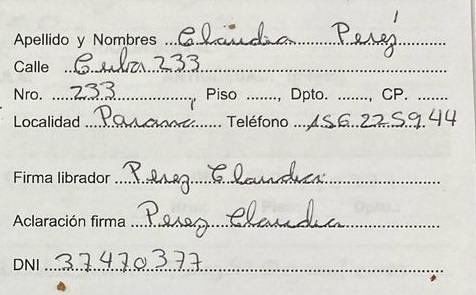 Apellido y Nombres Claudia Perez
Calle Cuba 233
Nro. 233, Piso ......, Dpto. ......, CP. ......
Localidad Parana Teléfono 156225944
Firma librador Perez Claudia
Aclaración firma Perez Claudia
DNI 37470377